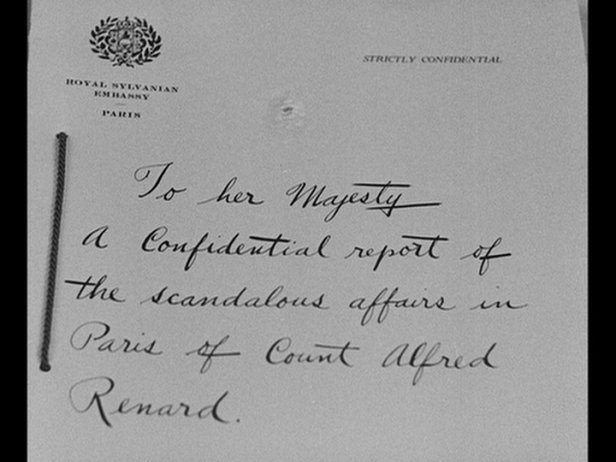 STRICTLY CONFIDENTIAL
ROYAL SYLVANIAN
EMBASSY
PARIS
To her Majesty
A Confidential report of
the scandalous affairs in
Paris of Count Alfred
Renard.